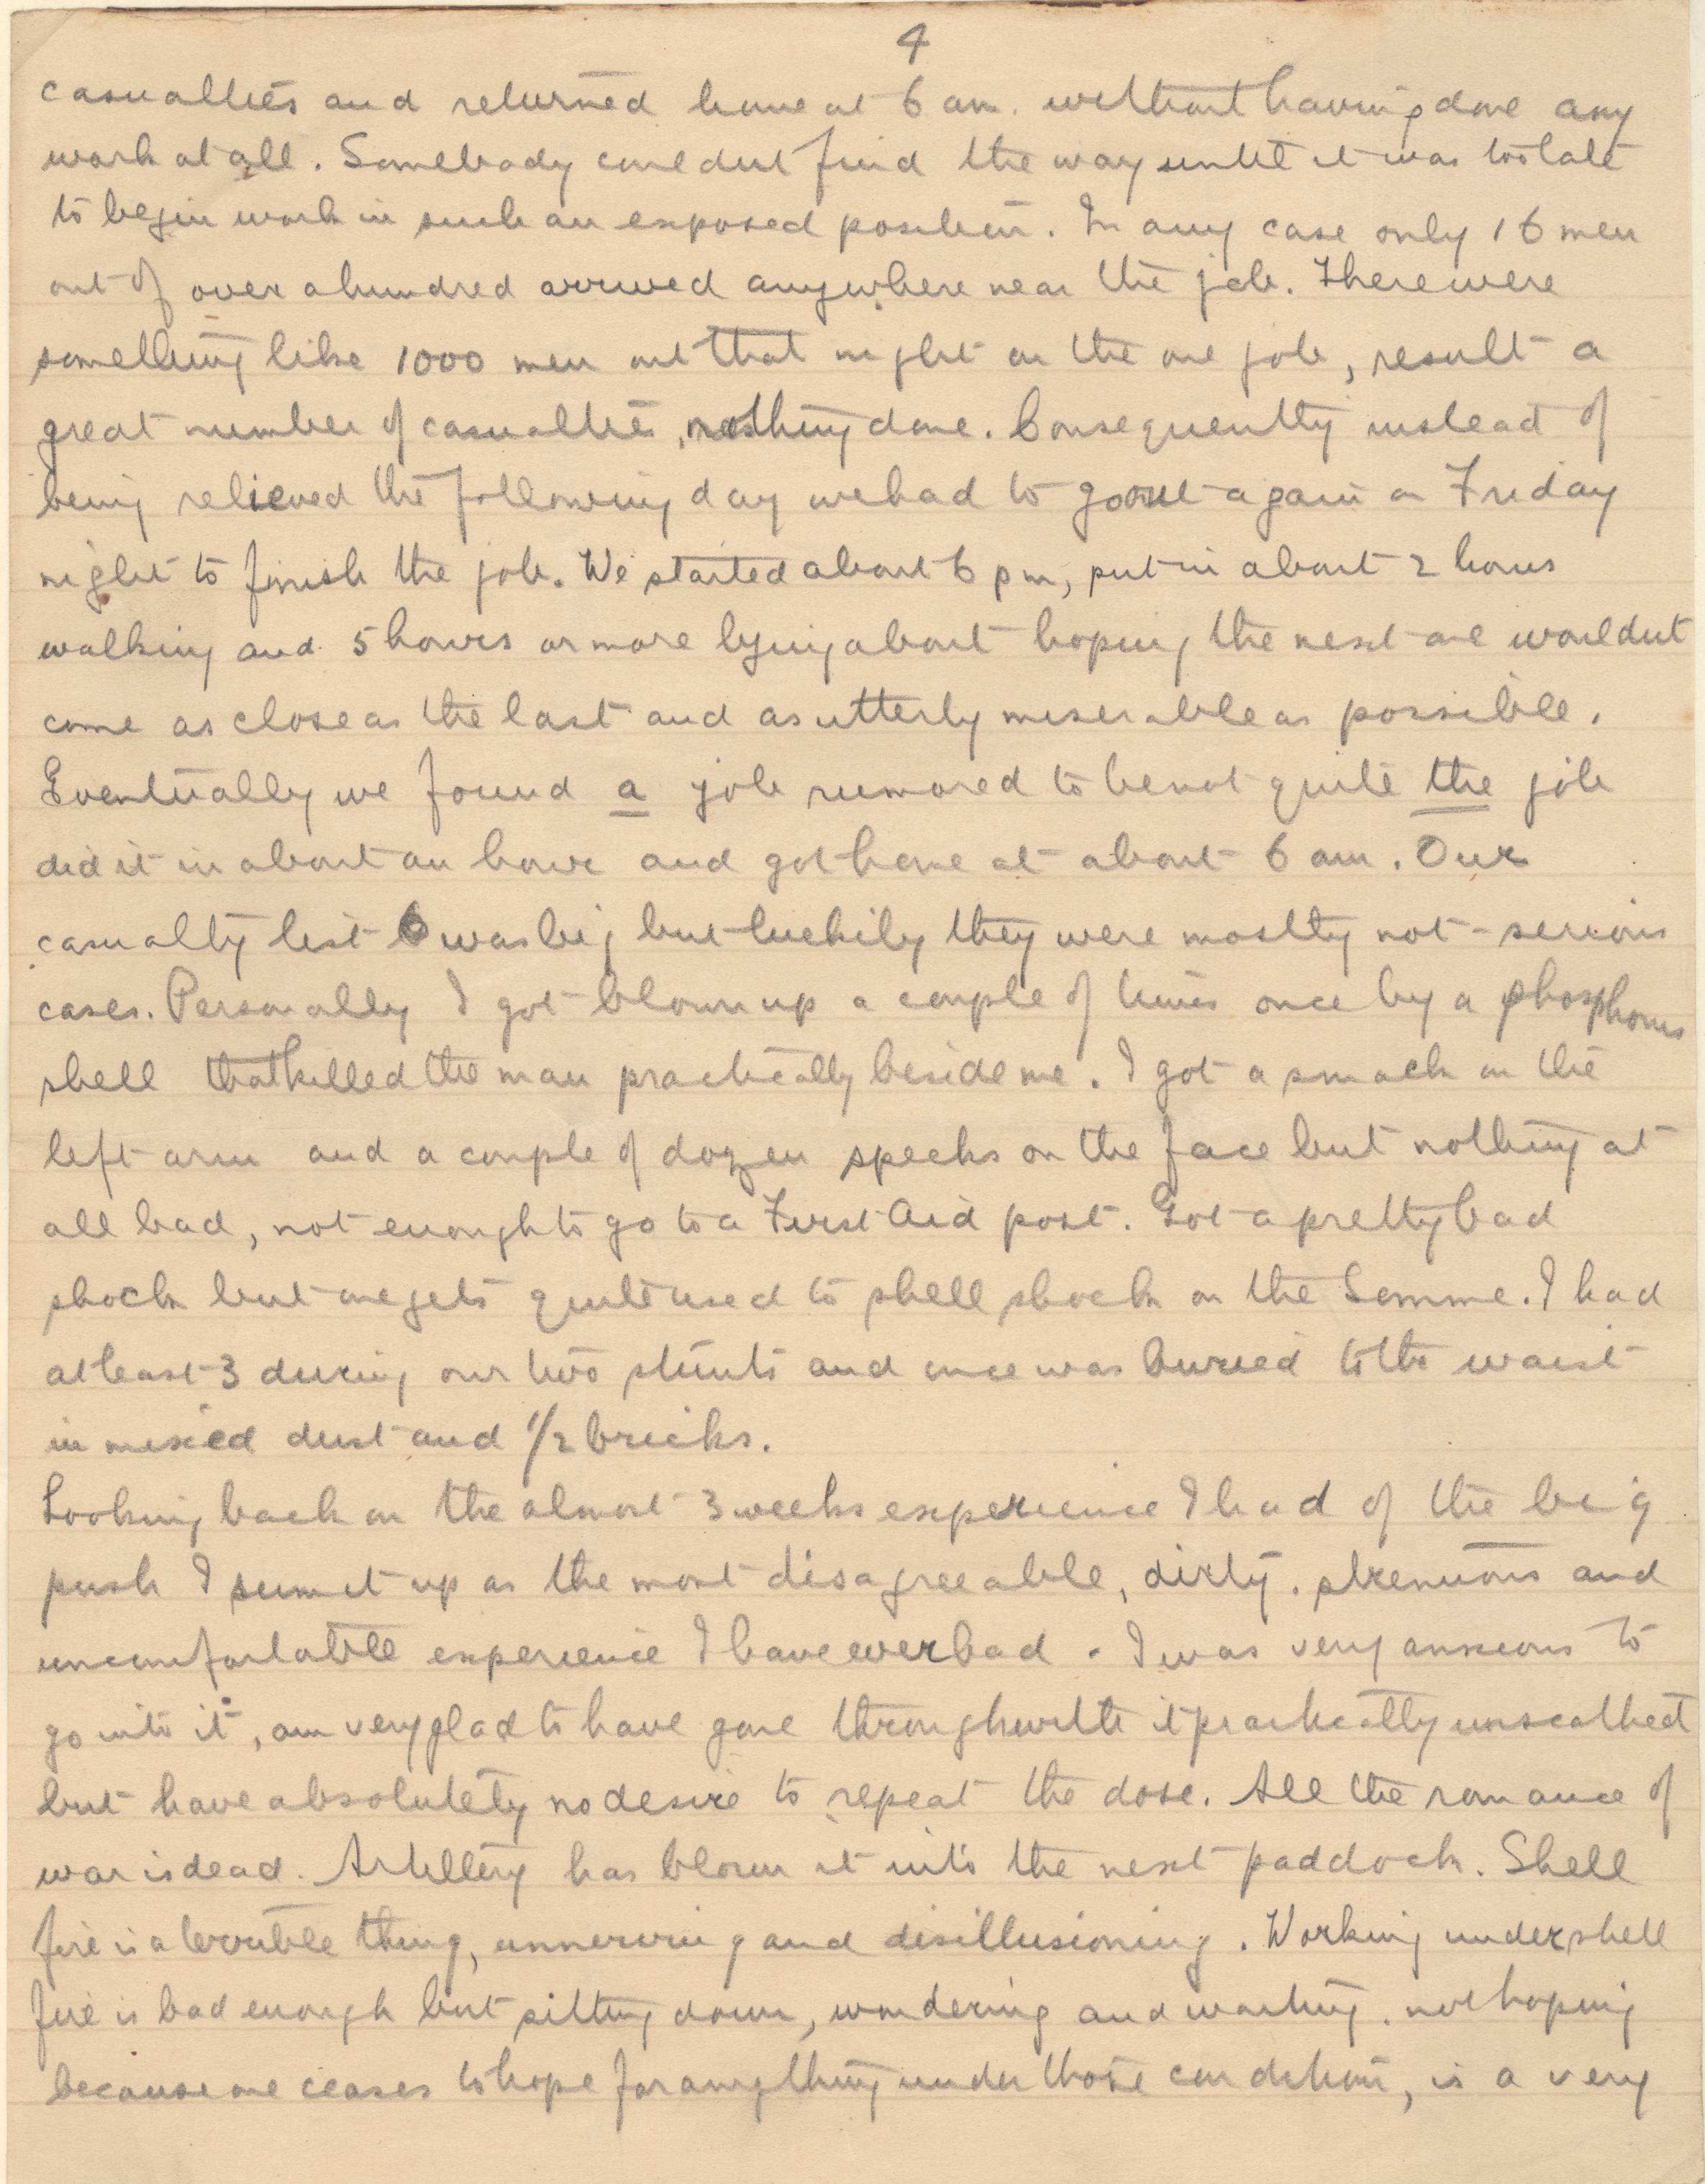 4
casualties and returned home at 6 am. without having done any
work at all. Somebody couldnt find the way until it was too late
to begin work in such an exposed position. In any case only 16 men
out of over a hundred arrived anywhere near the job. There were
something like 1000 men out that night on the one job, result a
great number of casualties, nothing done. Consequently instead of
being relieved the following day we had to go out again on Friday
night to finish the job. We started about 6 pm, put in about 2 hours
walking and 5 hours or more lying about hoping the next one wouldnt
come as close as the last and as utterly miserable as possible.
Eventually we found a job rumored to be not quite the job
did it in about an hour and got home at about 6 am. Our
casualty list was big but luckily they were mostly not - serious
cases. Personally I got blown up a couple of times once by a phosphorus
shell that killed the man practically beside me. I got a smack on the
left arm and a couple of dozen specks on the face but nothing at
all bad, not enough to go to a First Aid post. Got a pretty bad
shock but one gets quite used to shell shock on the Somme. I had
at least 3 during our two stunts and once was buried to the waist
in mixed dust and 1/2 bricks.
Looking back on the almost 3 weeks experience I had of the big
push I sum it up as the most disagreeable, dirty. strenuous and
uncomfortable experience I have ever had. I was very anxious to
go into it, am very glad to have gone through with it practically unscathed
but have absolutely no desire to repeat the dose. All the romance of
war is dead. Artillery has blown it into the next paddock. Shell
fire is a terrible thing, unnerving and disillusioning. Working under shell
fire is bad enough but sitting down, wondering and waiting. not hoping
because one ceases to hope for anything under those conditions, is a very